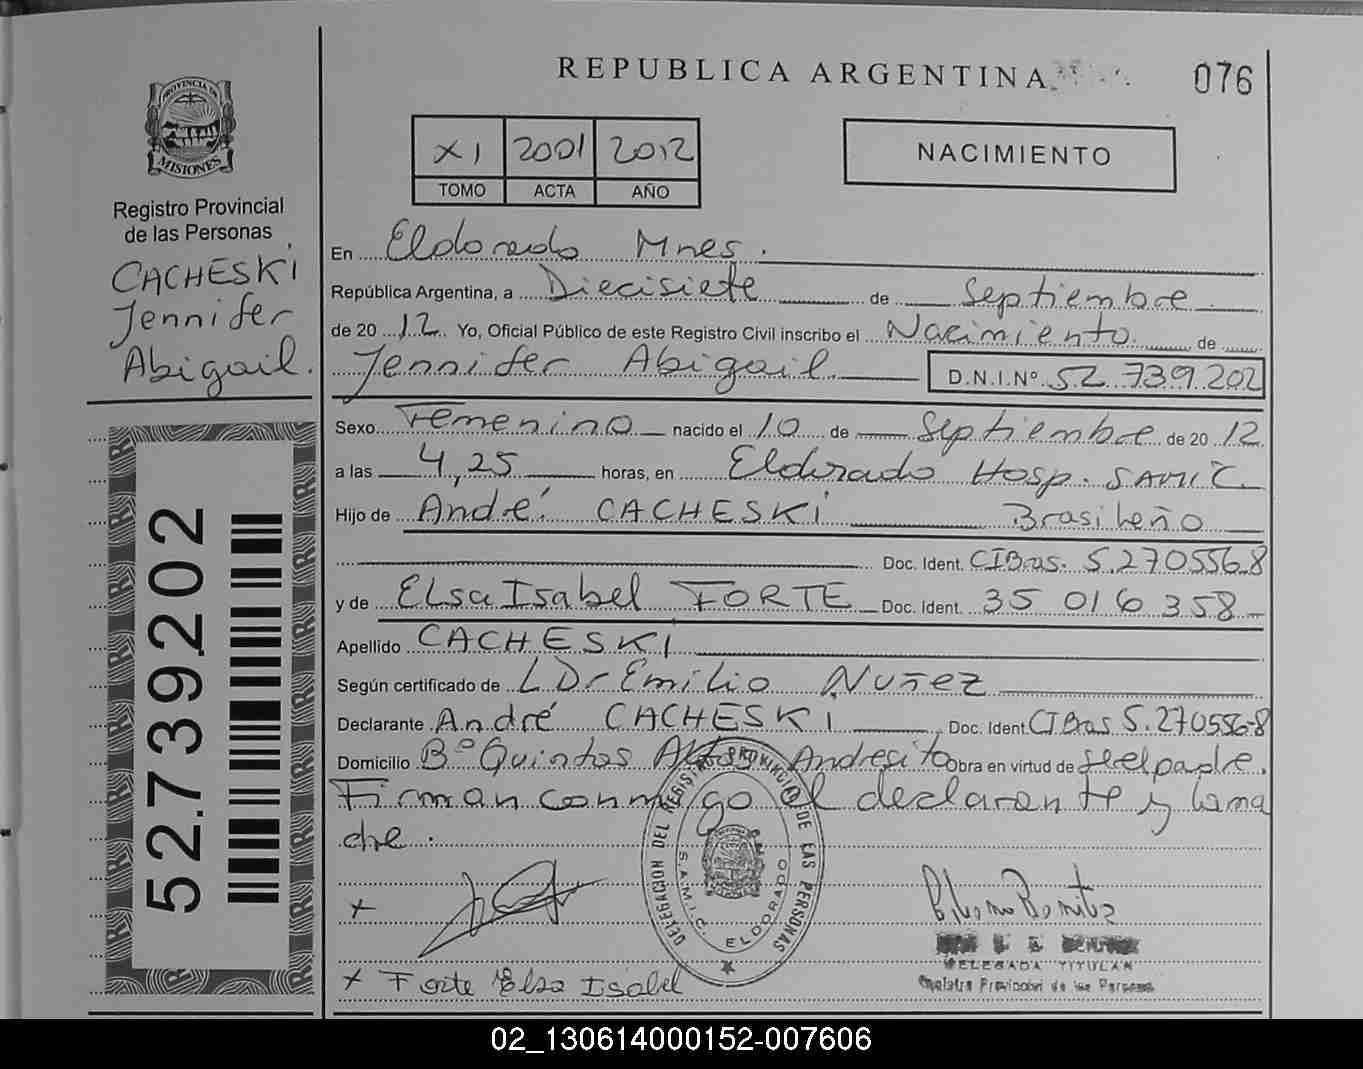 REPUBLICA ARGENTINA
076
PROVINCIA DE
MISIONES
Registro Provincial
de las Personas
CACHESKI
Jennifer
Abigail.
52.739.202
XI 2001 2012
TOMO ACTA AÑO
NACIMIENTO
En Eldorado Mnes.
República Argentina, a Diecisiete de Septiembre
de 2012 Yo, Oficial Público de este Registro Civil inscribo el Nacimiento de
Jennifer Abigail D.N.I.Nº 52.739.202
Sexo Femenino nacido el 10 de Septiembre de 2012
a las 4,25 horas, en Eldorado Hosp. SAMIC.
Hijo de André CACHESKI Brasileño
Doc. Ident. CIBras. 5.270556-8
y de Elsa Isabel FORTE Doc. Ident. 35 016 358
Apellido CACHESKI
Según certificado de L Dr Emilio Nuñez
Declarante André CACHESKI Doc. Ident. CIBras 5.270556-8
Domicilio Bº Quintas Altos Andresito Obra en virtud de Ser el padre.
Firman conmigo el declarante y la ma
dre.
DELEGACION DEL REGISTRO PROVINCIAL DE LAS PERSONAS
S.A.M.I.C. ELDORADO
x
Bonitez
DELEGADA TITULAR
Registro Provincial de las Personas
x Forte Elsa Isabel
02_130614000152-007606